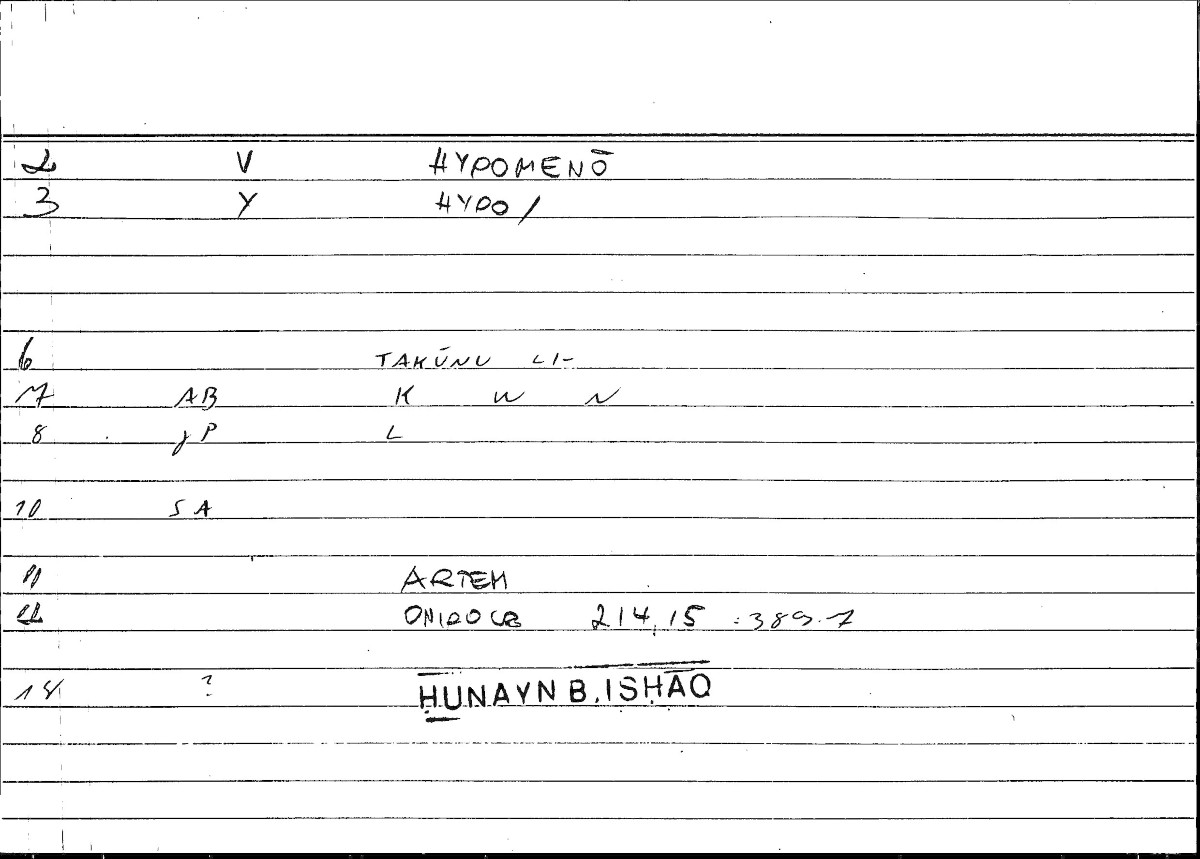 2 V HYPOMENŌ
3 Y HYPO/
6 TAKŪNU LI-
7 AB K W N
8 jP L
10 SA
11 ARTEM
12 ONIROCR 214,15 : 389.7
14 ? ḤUNAYN B. ISḤĀQ